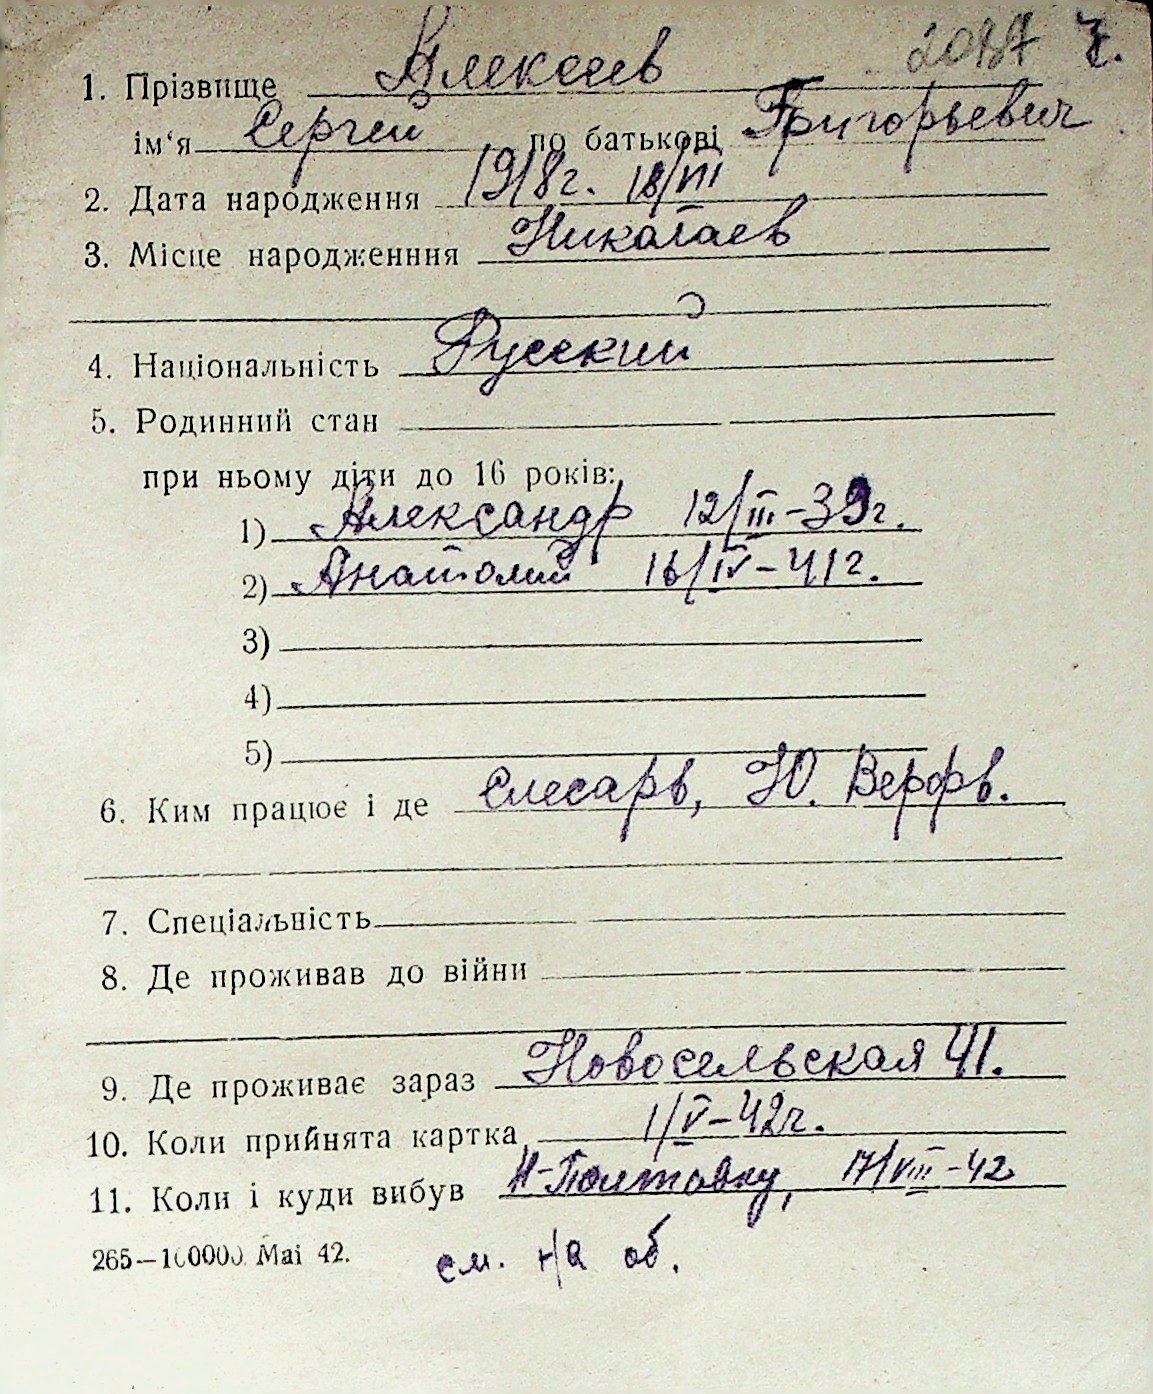 ч.
1. Прізвище Алексеев
ім‘я Сергей по батькові Григорьевич
2. Дата народження 1918г. 18/VIII
3. Місце народженння Николаев
4. Національність Русский
5. Родинний стан
при ньому діти до 16 років:
1) Александр 12/III–39г.
2) Анатолий 16/IV–41г.
3)
4)
5)
6. Ким працює і де Слесарь, Ю. Верфь.
7. Спеціальність
8. Де проживав до війни
9. Де проживає зараз Новосельская 41.
10. Коли прийнята картка 1/V–42г.
11. Коли і куди вибув Н-Полтовку, 17/VIII–42
265—100000 Маі 42. см. на об.